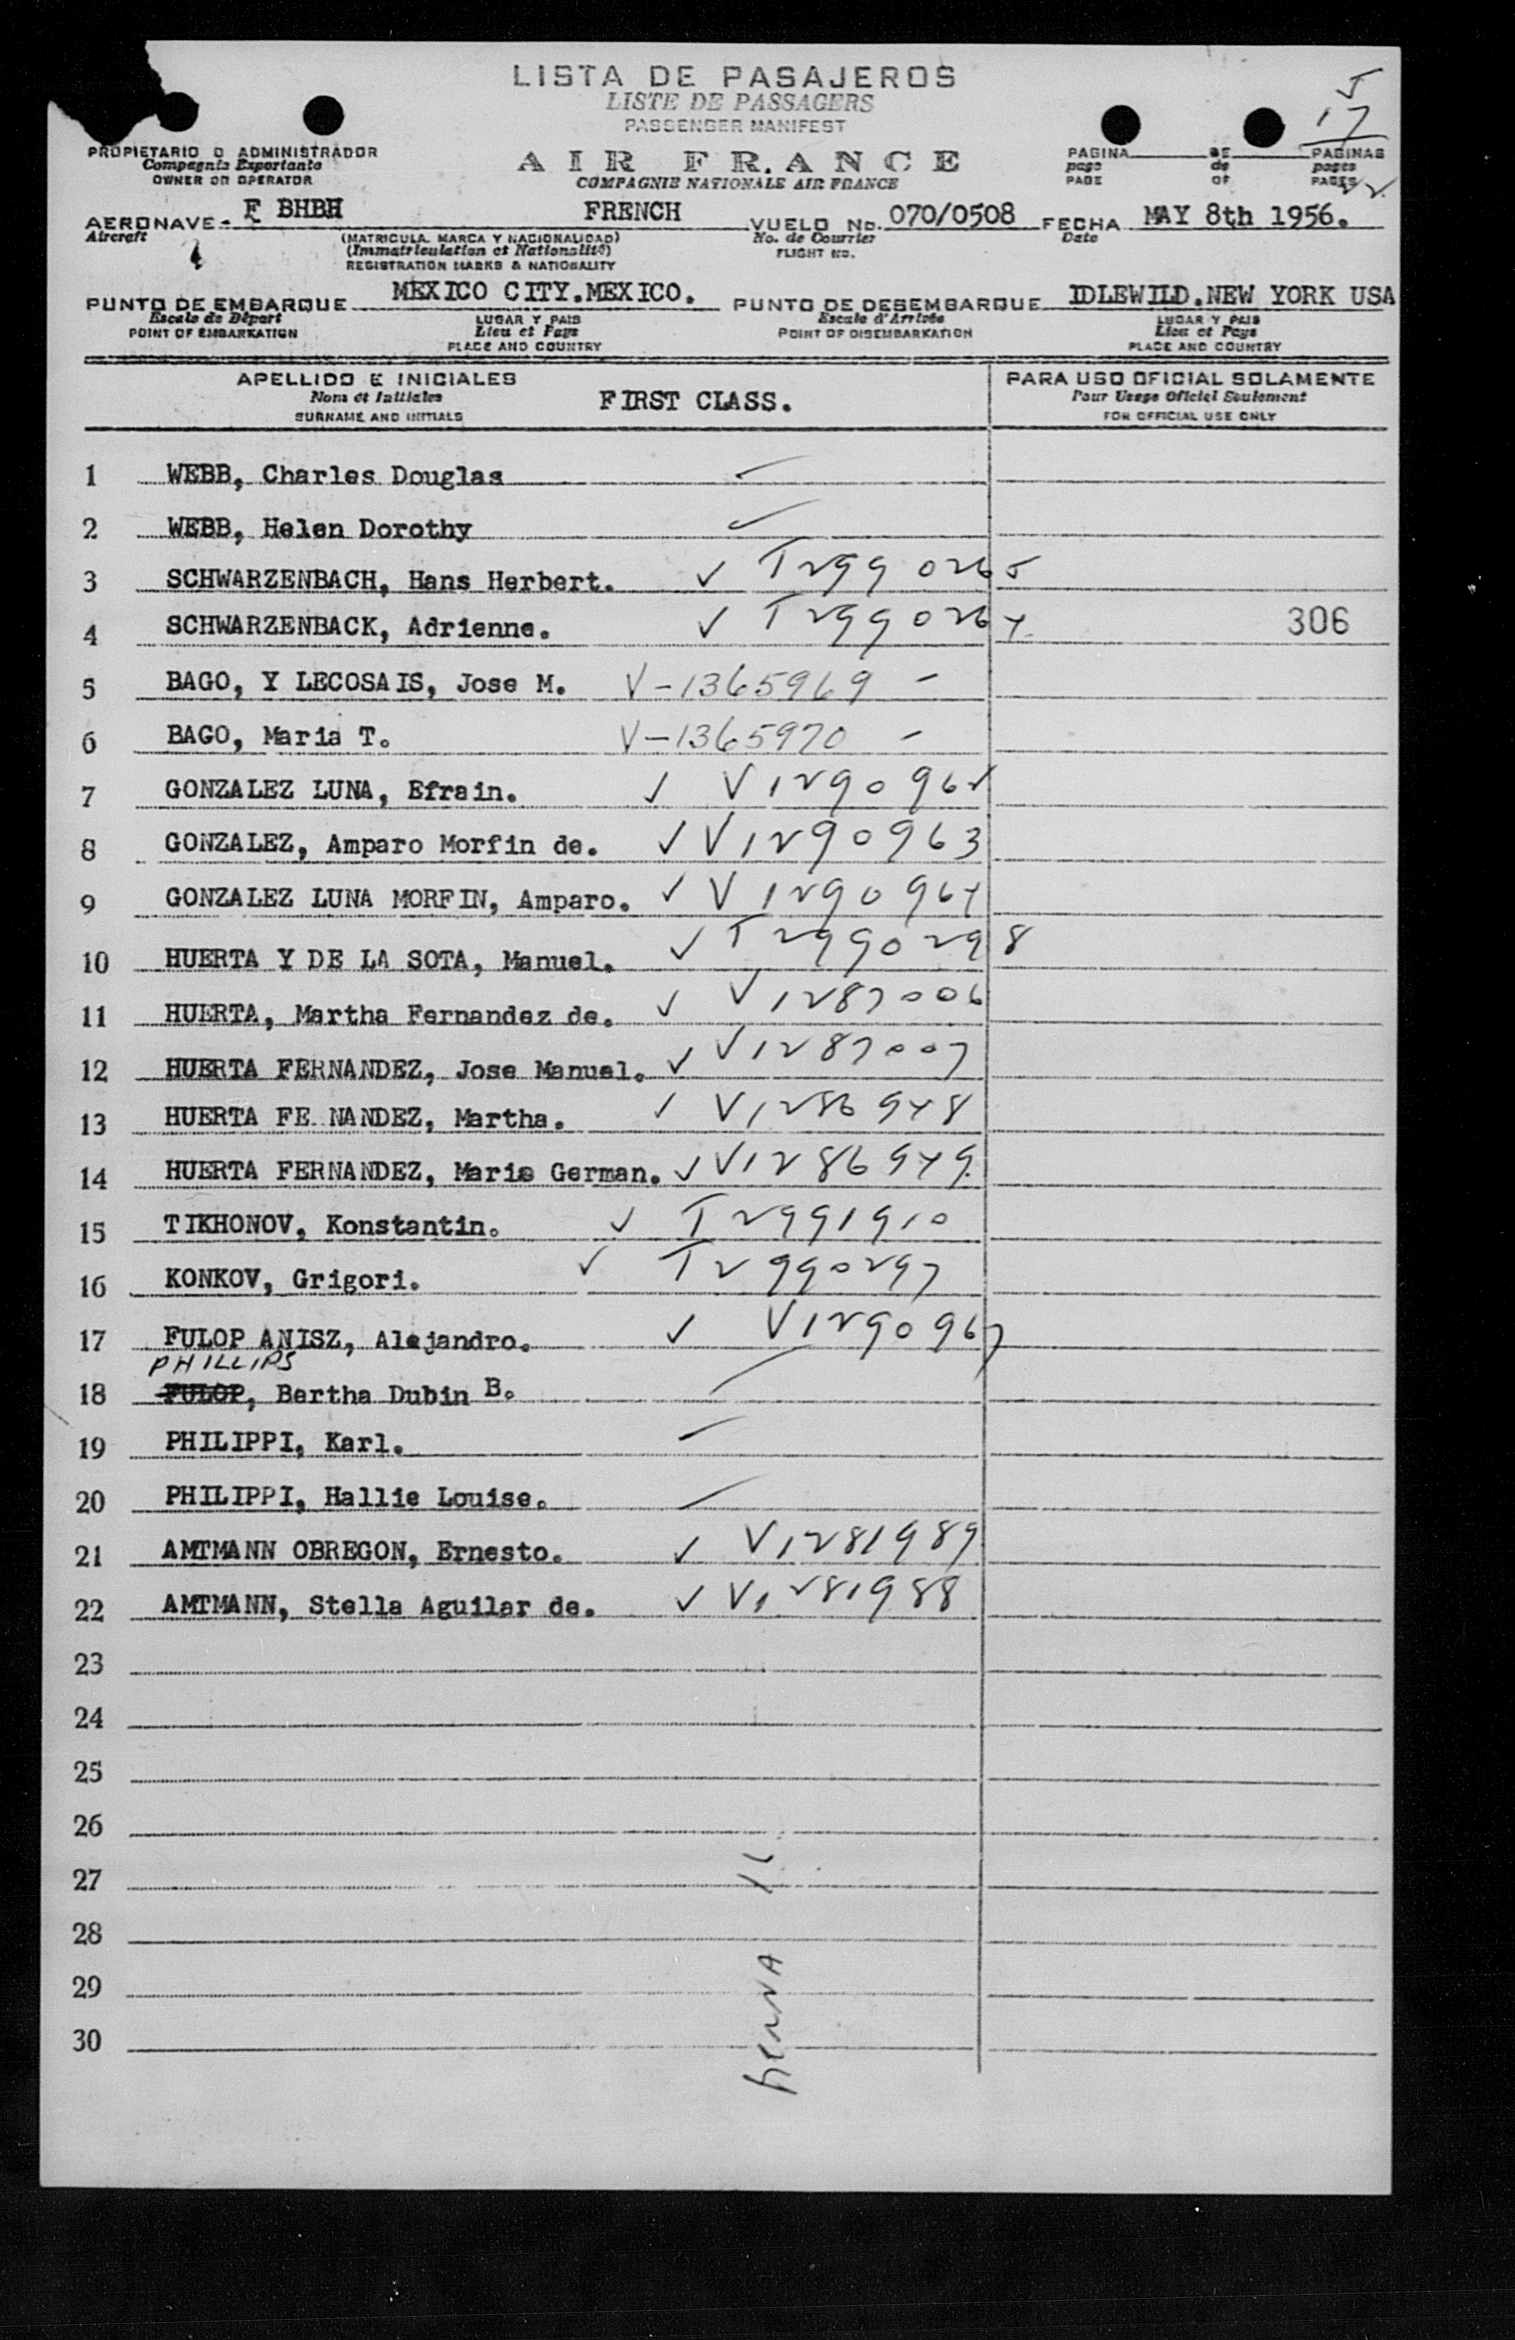 LISTA DE PASAJEROS
LISTE DE PASSAGERS
PASSENGER MANIFEST
5
17
PROPIETARIO O ADMINISTRADOR
Compagnie Exportante
OWNER OR OPERATOR
AIR FRANCE
COMPAGNIE NATIONALE AIR FRANCE
PAGINA DE PAGINAS
page de pages
PAGE OF PAGES
22
AERONAVE- F BHBH FRENCH VUELO No. 070/0508 FECHA MAY 8th 1956.
Aircraft (MATRICULA. MARCA Y NACIONALIDAD) No. de Courrier Date
(Immatriculation et Nationalité) FLIGHT NO.
REGISTRATION MARKS & NATIONALITY
PUNTO DE EMBARQUE MEXICO CITY.MEXICO. PUNTO DE DESEMBARQUE IDLEWILD.NEW YORK USA
Escale de Départ LUGAR Y PAIS Escale d'Arrivée LUGAR Y PAIS
POINT OF EMBARKATION Lieu et Pays POINT OF DISEMBARKATION Lieu et Pays
PLACE AND COUNTRY PLACE AND COUNTRY
APELLIDO E INICIALES PARA USO OFICIAL SOLAMENTE
Nom et Initiales FIRST CLASS. Pour Usage Officiel Seulement
SURNAME AND INITIALS FOR OFFICIAL USE ONLY
1 WEBB, Charles Douglas
2 WEBB, Helen Dorothy
3 SCHWARZENBACH, Hans Herbert. ✓ T2990265
4 SCHWARZENBACK, Adrienne. ✓ T2990264 306
5 BAGO, Y LECOSAIS, Jose M. V-1365969 -
6 BAGO, Maria T. V-1365970 -
7 GONZALEZ LUNA, Efrain. ✓ V1290962
8 GONZALEZ, Amparo Morfin de. ✓ V1290963
9 GONZALEZ LUNA MORFIN, Amparo. ✓ V1290964
10 HUERTA Y DE LA SOTA, Manuel. ✓ T2990298
11 HUERTA, Martha Fernandez de. ✓ V1287006
12 HUERTA FERNANDEZ, Jose Manuel. ✓ V1287007
13 HUERTA FE NANDEZ, Martha. ✓ V1286948
14 HUERTA FERNANDEZ, Maria German. ✓ V1286949
15 TIKHONOV, Konstantin. ✓ T2991910
16 KONKOV, Grigori. ✓ T2990297
17 FULOP ANISZ, Alejandro. ✓ V1290967
PHILLIPS
18 FULOP, Bertha Dubin B.
19 PHILIPPI, Karl.
20 PHILIPPI, Hallie Louise.
21 AMTMANN OBREGON, Ernesto. ✓ V1281989
22 AMTMANN, Stella Aguilar de. ✓ V1281988
23
24
25
26
27
28
29
30